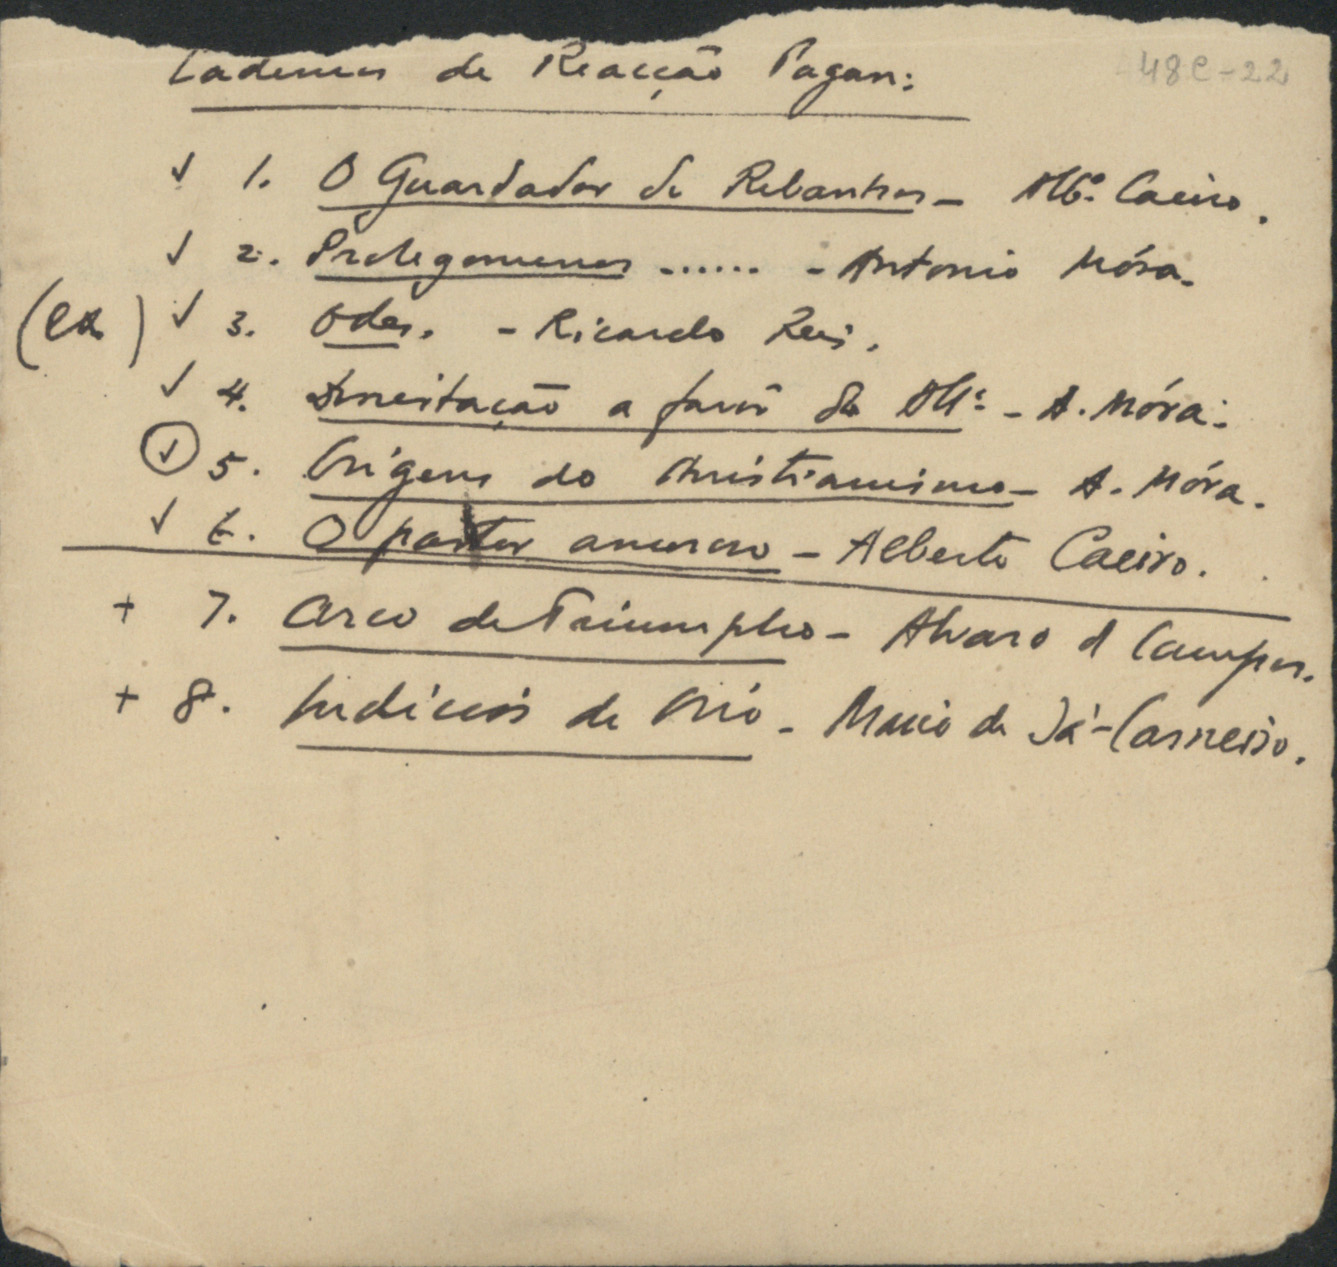 Cadernos de Reacção Pagan:
48C-22
✓ 1. O Guardador de Rebanhos – Albº Caeiro.
✓ 2. Prolegomenos ...... – Antonio Móra.
✓ 3. Odes. – Ricardo Reis.
✓ 4. Dissertação a favor da Allª – A. Móra.
✓ 5. Origens do Christianismo – A. Móra.
✓ 6. O pastor amoroso – Alberto Caeiro.
+ 7. Arco de Triumpho – Alvaro d Campos.
+ 8. Indicios de Oiro – Mario de Sá-Carneiro.